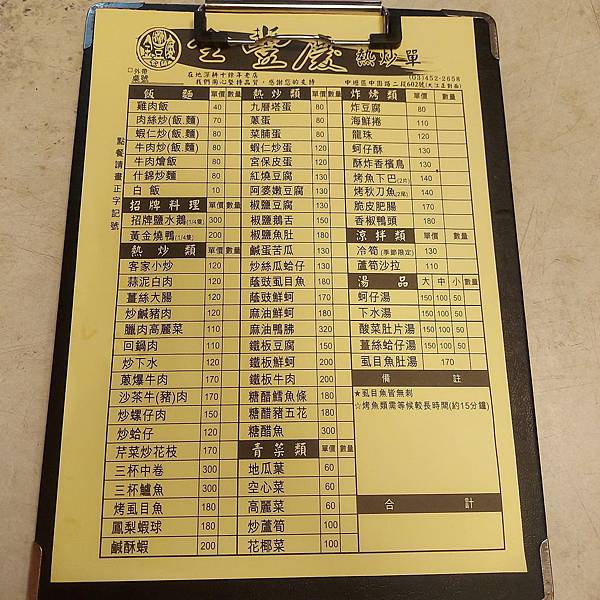 豐慶 熱炒單
(03)452-2658
在地深耕十餘年老店
我們用心堅持品質,感謝您的支持
中壢區中園路二段602號(大江正對面)
□外帶
桌號
點餐請畫正字記號
飯 麵 單價 數量
雞肉飯 40
肉絲炒(飯.麵) 70
蝦仁炒(飯.麵) 80
牛肉炒(飯.麵) 80
牛肉燴飯 80
什錦炒麵 80
白 飯 10
招牌料理 單價 數量
招牌鹽水鵝(1/4隻) 300
黃金燒鴨(1/4隻) 200
熱炒類 單價 數量
客家小炒 120
蒜泥白肉 120
薑絲大腸 120
炒鹹豬肉 120
臘肉高麗菜 110
回鍋肉 110
炒下水 120
蔥爆牛肉 170
沙茶牛(豬)肉 170
炒螺仔肉 150
炒蛤仔 120
芹菜炒花枝 170
三杯中卷 300
三杯鱸魚 300
烤虱目魚 180
鳳梨蝦球 180
鹹酥蝦 200
熱炒類 單價 數量
九層塔蛋 80
蔥蛋 80
菜脯蛋 80
蝦仁炒蛋 120
宮保皮蛋 120
紅燒豆腐 130
阿婆嫩豆腐 130
椒鹽豆腐 130
椒鹽鵝舌 150
椒鹽魚肚 180
鹹蛋苦瓜 130
炒絲瓜蛤仔 130
蔭豉虱目魚 180
蔭豉鮮蚵 170
麻油鮮蚵 180
麻油鴨胇 320
鐵板豆腐 150
鐵板鮮蚵 200
鐵板牛肉 200
糖醋鱈魚條 180
糖醋豬五花 180
糖醋魚 300
青菜類 單價 數量
地瓜葉 60
空心菜 60
高麗菜 60
炒蘆筍 100
花椰菜 100
炸烤類 單價 數量
炸豆腐 80
海鮮捲 110
龍珠 120
蚵仔酥 130
酥炸香檳鳥 130
烤魚下巴(2片) 140
烤秋刀魚(2尾) 140
脆皮肥腸 170
香椒鴨頭 180
涼拌類 單價 數量
冷筍(季節限定) 130
蘆筍沙拉 110
湯 品 大 中 小 數量
蚵仔湯 150 100 50
下水湯 150 100 50
酸菜肚片湯 150 100 50
薑絲蛤仔湯 150 100 50
虱目魚肚湯 170
備 註
★虱目魚皆無刺
☆烤魚類需等候較長時間(約15分鐘)
合 計